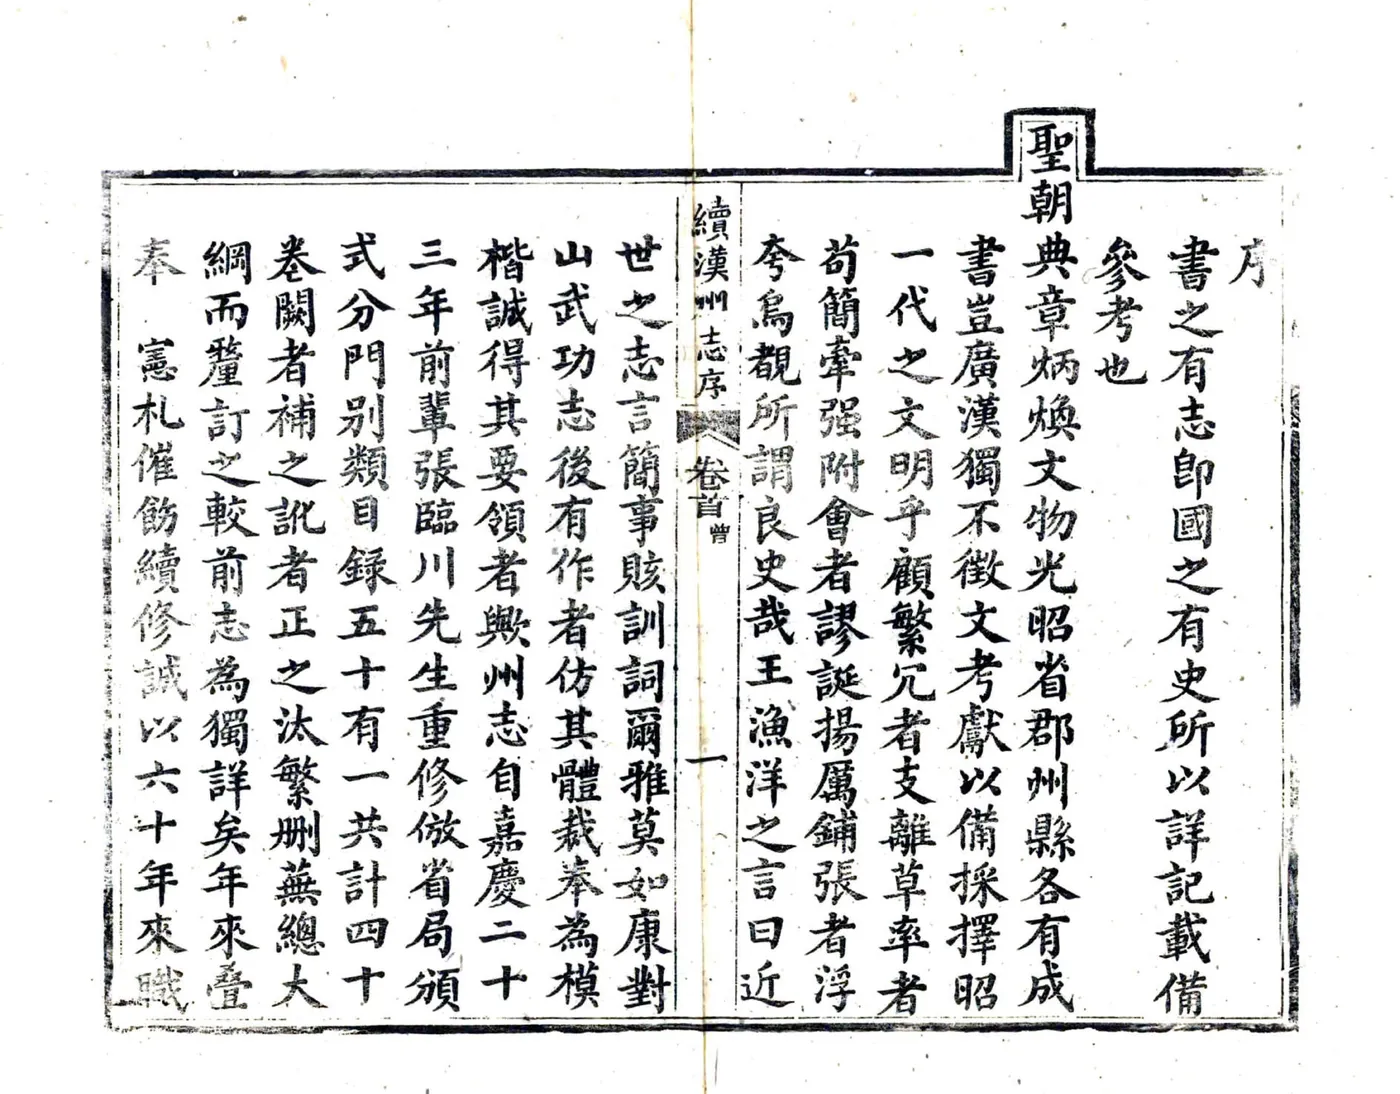 序
書之有志卽國之有史所以詳記載備
參考也
聖朝典章炳煥文物光昭省郡州縣各有成
書豈廣漢獨不徵文考獻以備採擇昭
一代之文明乎顧繁冗者支離草率者
苟簡牽强附會者謬誕揚厲鋪張者浮
夸烏覩所謂良史哉王漁洋之言曰近
續漢州志序
卷首
曾
一
世之志言簡事賅訓詞爾雅莫如康對
山武功志後有作者仿其體裁奉為模
楷誠得其要領者歟州志自嘉慶二十
三年前輩張臨川先生重修倣省局頒
式分門別類目録五十有一共計四十
卷闕者補之訛者正之汰繁刪蕪總大
綱而釐訂之較前志為獨詳矣年來疊
奉 憲札催飭續修誠以六十年來職